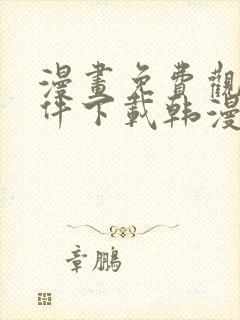 漫畫免費觀
件下載韩漫
章鵬